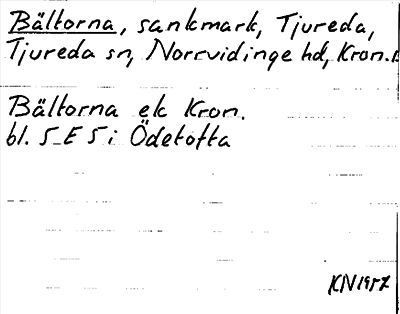 Bältorna, sankmark, Tjureda,
Tjureda sn, Norrvidinge hd, Kron.l
Bältorna ek Kron.
bl. 5 E 5 i Ödetofta
KN 1957